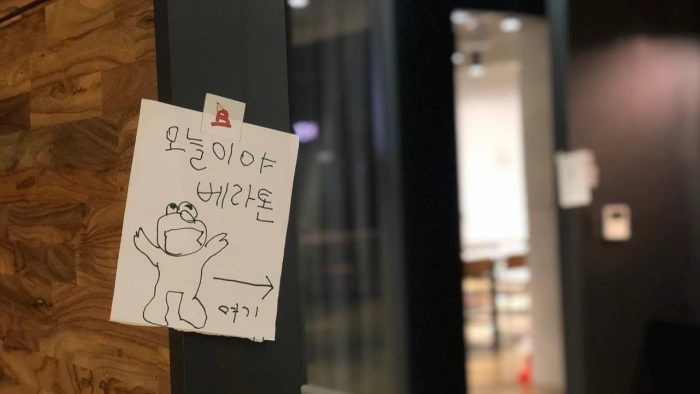 B
오늘이야
베라톤
여기